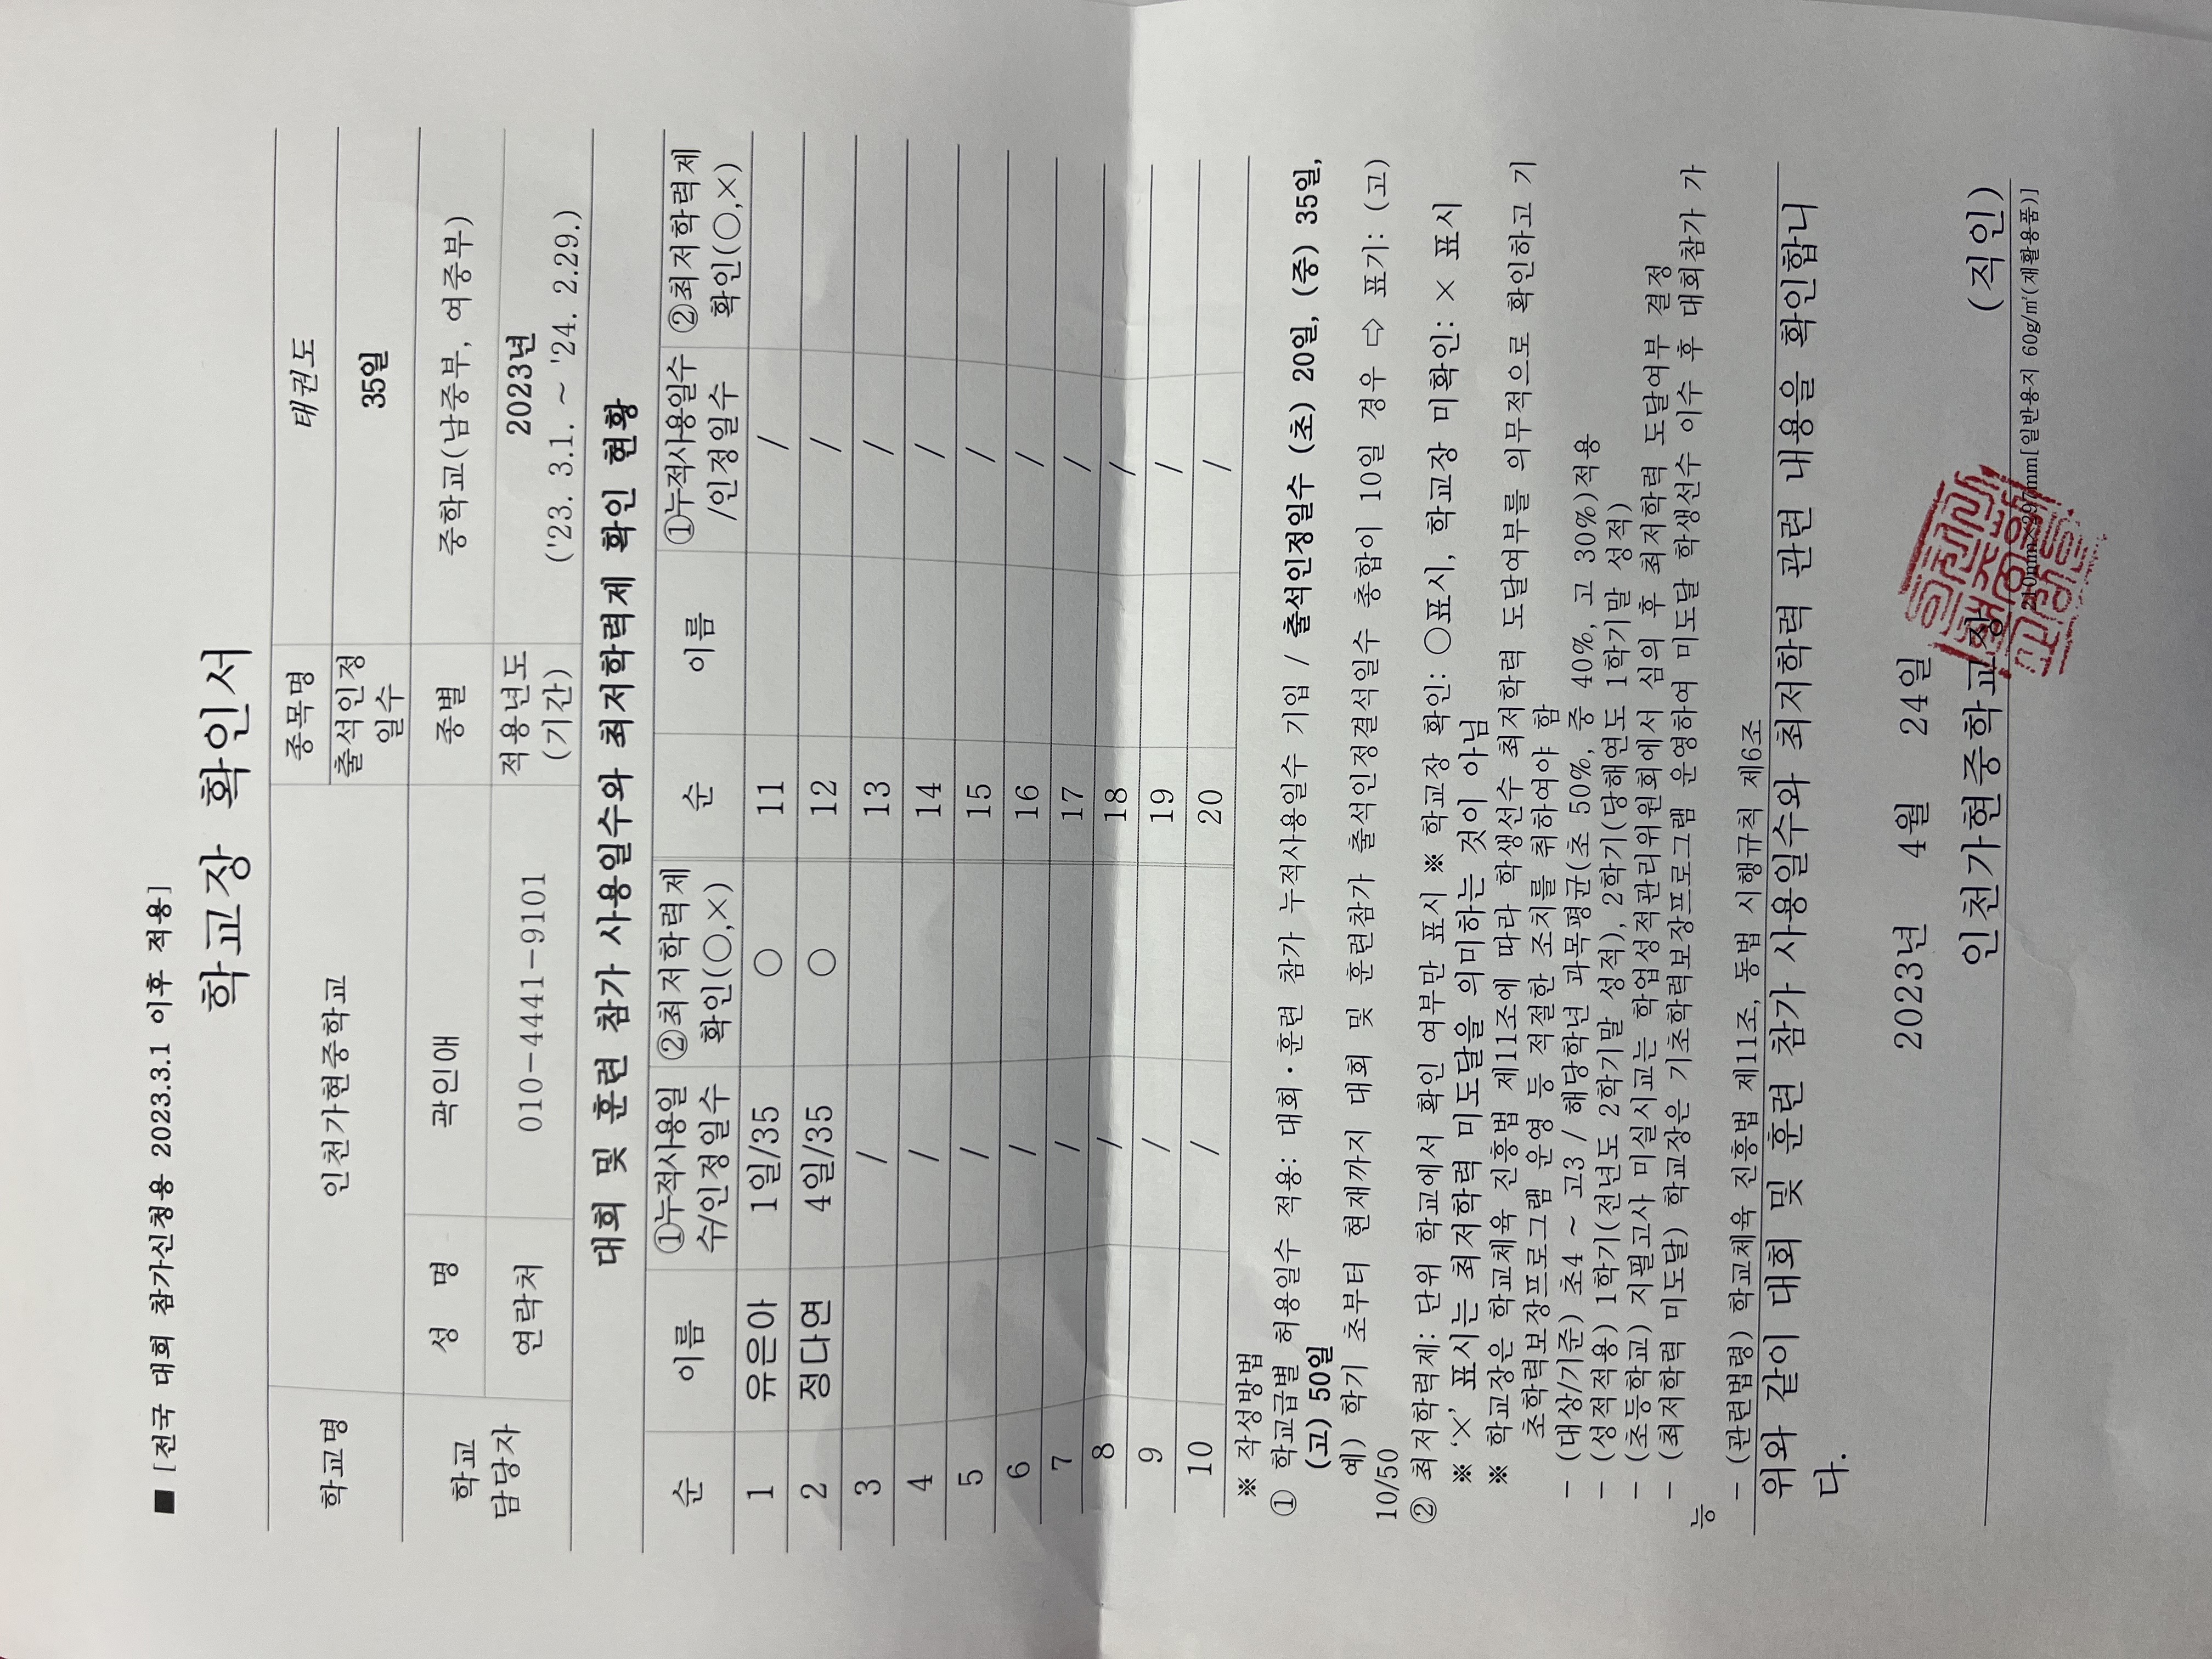 ■ [전국 대회 참가신청용 2023.3.1 이후 적용]
학교장 확인서
학교명 인천가현중학교 종목명 태권도
출석인정 일수 35일
학교 담당자 성 명 곽인애 종별 중학교(남중부, 여중부)
연락처 010-4441-9101 적용년도 (기간) 2023년
('23. 3.1. ~ '24. 2.29.)
대회 및 훈련 참가 사용일수와 최저학력제 확인 현황
순 이름 ①누적사용일수/인정일수 ②최저학력제 확인(○,×) 순 이름 ①누적사용일수/인정일수 ②최저학력제 확인(○,×)
1 유은아 1일/35 ○ 11 /
2 정다연 4일/35 ○ 12 /
3 / 13 /
4 / 14 /
5 / 15 /
6 / 16 /
7 / 17 /
8 / 18 /
9 / 19 /
10 / 20 /
※ 작성방법
① 학교급별 허용일수 적용: 대회·훈련 참가 누적사용일수 기입 / 출석인정일수 (초) 20일, (중) 35일,
(고) 50일
예) 학기 초부터 현재까지 대회 및 훈련참가 출석인정결석일수 총합이 10일 경우 ⇨ 표기: (고)
10/50
② 최저학력제: 단위 학교에서 확인 여부만 표시 ※ 학교장 확인: ○표시, 학교장 미확인: × 표시
※ '×' 표시는 최저학력 미도달을 의미하는 것이 아님
※ 학교장은 학교체육 진흥법 제11조에 따라 학생선수 최저학력 도달여부를 의무적으로 확인하고 기
초학력보장프로그램 운영 등 적절한 조치를 취하여야 함
- (대상/기준) 초4 ~ 고3 / 해당학년 과목평균(초 50%, 중 40%, 고 30%)적용
- (성적적용) 1학기(전년도 2학기말 성적), 2학기(당해연도 1학기말 성적)
- (초등학교) 지필고사 미실시교는 학업성적관리위원회에서 심의 후 최저학력 도달여부 결정
- (최저학력 미도달) 학교장은 기초학력보장프로그램 운영하여 미도달 학생선수 이수 후 대회참가 가
능
- (관련법령) 학교체육 진흥법 제11조, 동법 시행규칙 제6조
위와 같이 대회 및 훈련 참가 사용일수와 최저학력 관련 내용을 확인합니
다.
2023년 4월 24일
인천가현중학교장 (직인)
210mm×297mm[일반용지 60g/㎡(재활용품)]